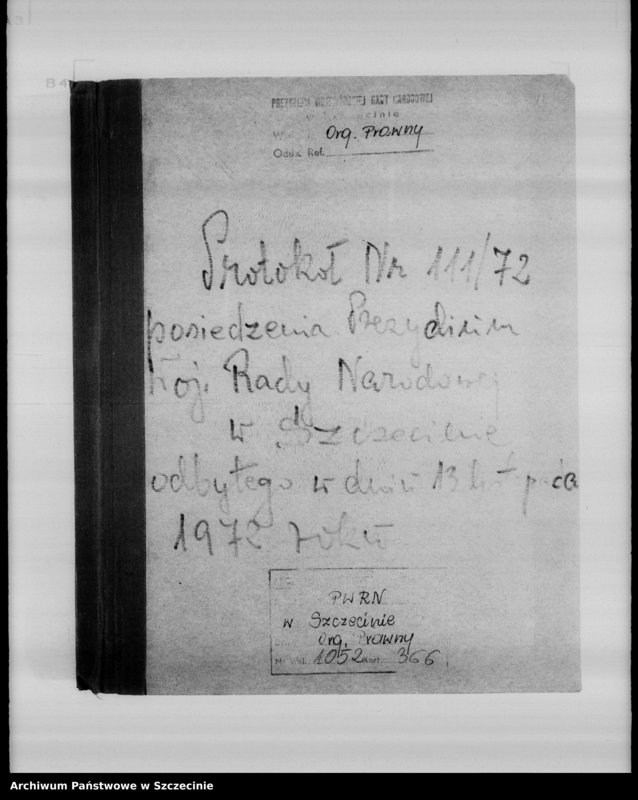 PREZYDIUM WOJEWÓDZKIEJ RADY NARODOWEJ
w Szczecinie
Org. Prawny
Oddz. Ref.
Protokół Nr 111/72
posiedzenia Prezydium
Woj. Rady Narodowej
w Szczecinie
odbytego w dniu 13 listopada
1972 roku
PWRN
w Szczecinie
Org. Prawny
Nr 1052 kart 366
Archiwum Państwowe w Szczecinie